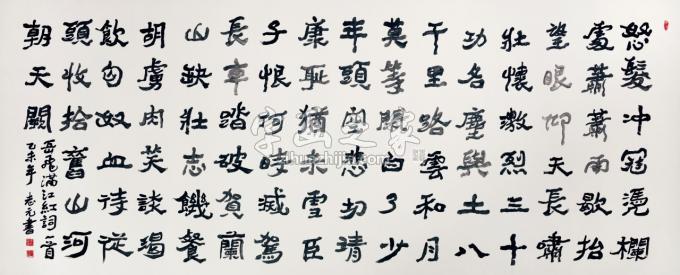 怒髮冲冠憑欄
處蕭蕭雨歇抬
望眼仰天長嘯
壯懷激烈三十
功名塵與土八
千里路雲和月
莫等閒白了少
年頭空悲切靖
康恥猶未雪臣
子恨何時滅駕
長車踏破賀蘭
山缺壯志饑餐
胡虜肉笑談渴
飲匈奴血待從
頭收拾舊山河
朝天闕
岳飛滿江紅詞一首
乙未年志元書